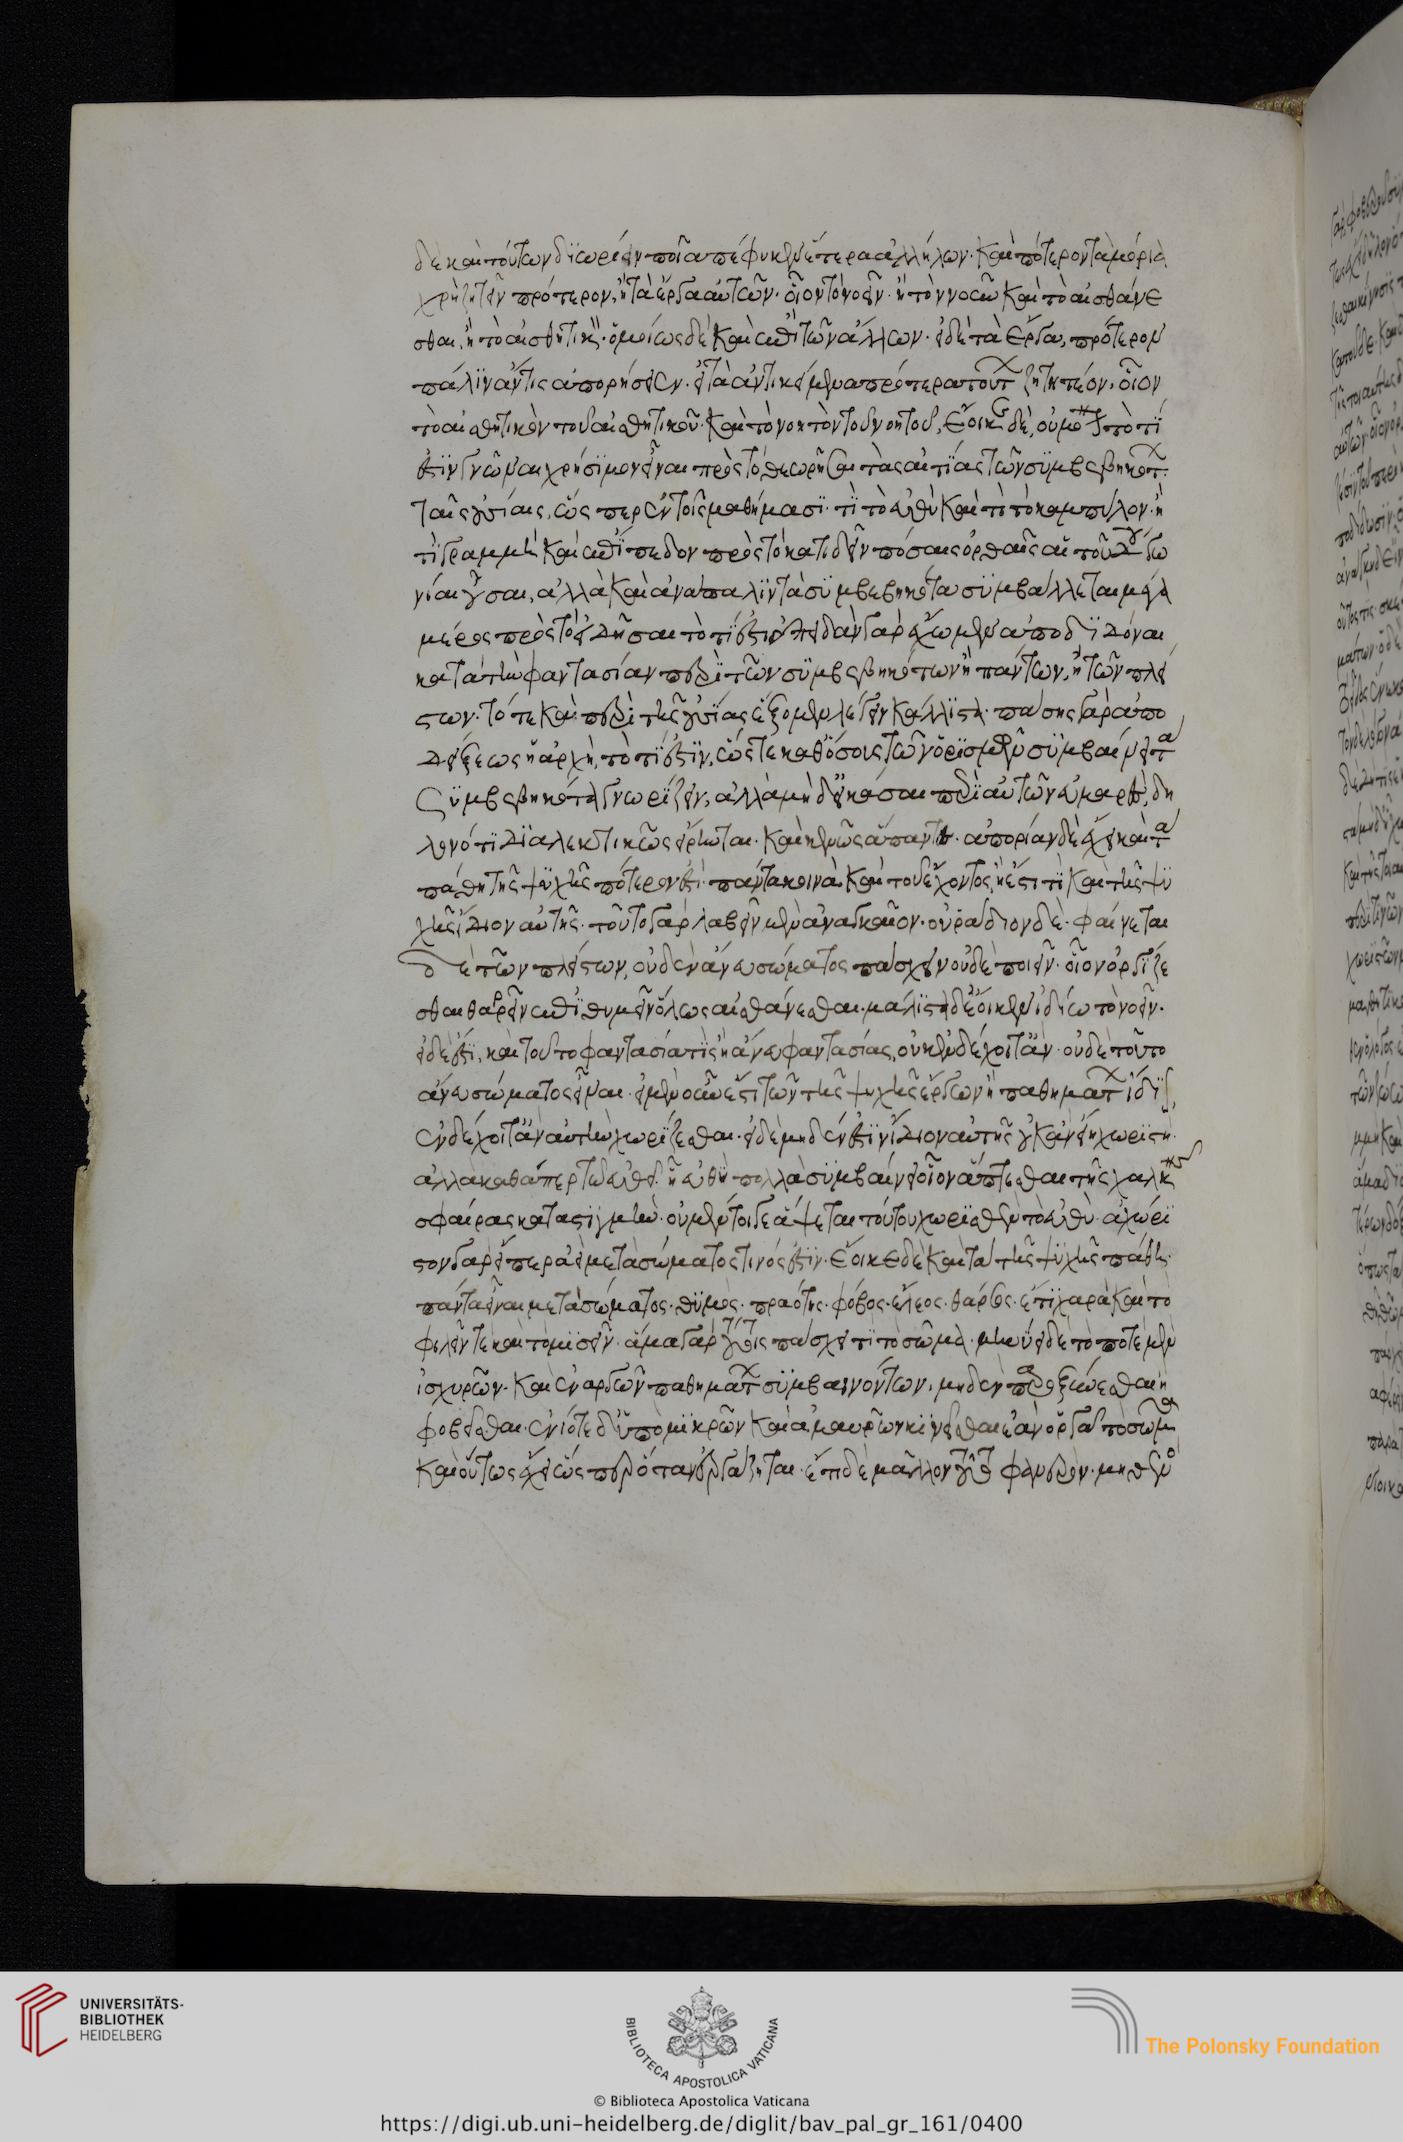 δὲ καὶ τούτων διωρίσαι ποῖα πέφυκεν ἕτερα ἀλλήλων· καὶ πότερον τὰ μόρια
χρὴ ζητεῖν πρότερον, ἢ τὰ ἔργα αὐτῶν· οἷον τὸ νοεῖν· ἢ τὸν νοῦν καὶ τὸ αἰσθάνε
σθαι, ἢ τὸ αἰσθητικόν· ὁμοίως δὲ καὶ ἐπὶ τῶν ἄλλων· εἰ δὲ τὰ ἔργα, πρότερον
πάλιν ἄν τις ἀπορήσειεν· εἰ τὰ ἀντικείμενα πρότερα τούτων ζητητέον· οἷον
τὸ αἰσθητικὸν τοῦ αἰσθητικοῦ· καὶ τὸ νοητὸν τοῦ νοητοῦ, ἔοικε δὲ, οὐ μόνον τὸ τί
ἐστιν γνῶναι χρήσιμον εἶναι πρὸς τὸ θεωρῆσαι τὰς αἰτίας τῶν συμβεβηκότων
ταῖς οὐσίαις, ὥσπερ ἐν τοῖς μαθήμασι· τί τὸ εὐθὺ καὶ τί τὸ καμπύλον· ἢ
τί γραμμὴ καὶ ἐπίπεδον πρὸς τὸ κατιδεῖν πόσαις ὀρθαῖς αἱ τοῦ τριγώνου γω
νίαι ἴσαι, ἀλλὰ καὶ ἀνάπαλιν τὰ συμβεβηκότα συμβάλλεται μέγα
μέρος πρὸς τὸ εἰδῆσαι τὸ τί ἐστιν· ἐπειδὰν γὰρ ἔχωμεν ἀποδιδόναι
κατὰ τὴν φαντασίαν περὶ τῶν συμβεβηκότων ἢ πάντων, ἢ τῶν πλεί
στων· τότε καὶ περὶ τῆς οὐσίας ἕξομεν λέγειν κάλλιστα· πάσης γὰρ ἀπο
δείξεως ἡ ἀρχὴ, τὸ τί ἐστιν, ὥστε καθ' ὅσους τῶν ὁρισμῶν συμβαίνει τὰ
συμβεβηκότα γνωρίζειν, ἀλλὰ μὴ δ' εἰκάσαι περὶ αὐτῶν εὐμαρὲς, δῆ
λον ὅτι διαλεκτικῶς εἴρηται· καὶ κενῶς ἅπαντες· ἀπορίαν δὲ ἔχει καὶ τὰ
πάθη τῆς ψυχῆς πότερον ἐστὶ πάντα κοινὰ καὶ τοῦ ἔχοντος, ἢ ἔστι τι καὶ τῆς ψυ
χῆς ἴδιον αὐτῆς· τοῦτο γὰρ λαβεῖν μὲν ἀναγκαῖον· οὐ ῥάδιον δὲ· φαίνεται
δὲ τῶν πλείστων, οὐδὲν ἄνευ σώματος πάσχειν οὐδὲ ποιεῖν· οἷον ὀργίζε
σθαι θαρρεῖν ἐπιθυμεῖν ὅλως αἰσθάνεσθαι· μάλιστα δὲ ἔοικεν ἰδίῳ τὸ νοεῖν·
εἰ δέ ἐστι, καὶ τοῦτο φαντασία τὶς ἢ ἄνευ φαντασίας, οὐκ ἐνδέχοιτ' ἂν οὐδὲ τοῦτο
ἄνευ σώματος εἶναι· εἰ μὲν οὖν ἔστι τῶν τῆς ψυχῆς ἔργων ἢ παθημάτων ἴδιον,
ἐνδέχοιτ' ἂν αὐτὴν χωρίζεσθαι· εἰ δὲ μηδέν ἐστιν ἴδιον αὐτῆς οὐκ ἂν εἴη χωριστὴ
ἀλλὰ καθάπερ τῷ εὐθεῖ ᾗ εὐθὺ πολλὰ συμβαίνει οἷον ἅπτεσθαι τῆς χαλκῆς
σφαίρας κατὰ στιγμὴν· οὐ μέντοι γε ἅψεται τούτου χωρισθὲν τὸ εὐθὺ· ἀχώρι
στον γὰρ εἴπερ ἀεὶ μετὰ σώματος τινός ἐστιν· ἔοικε δὲ καὶ τὰ τῆς ψυχῆς πάθη
πάντα εἶναι μετὰ σώματος· θυμὸς· πραότης· φόβος· ἔλεος· θάρσος· ἔτι χαρὰ καὶ τὸ
φιλεῖν τε καὶ τὸ μισεῖν· ἅμα γὰρ τούτοις πάσχει τι τὸ σῶμα· μηνύει δὲ τὸ ποτὲ μὲν
ἰσχυρῶν· καὶ ἐναργῶν παθημάτων συμβαινόντων, μηδὲν παροξύνεσθαι ἢ
φοβεῖσθαι· ἐνίοτε δ' ὑπὸ μικρῶν καὶ ἀμαυρῶν κινεῖσθαι ἐὰν ὀργᾷ τὸ σῶμα
καὶ οὕτως ἔχει ὥσπερ ὅταν ὀργίζηται· ἔτι δὲ μᾶλλον τοῦτο φανερὸν· μηθενὸ
UNIVERSITÄTS-
BIBLIOTHEK
HEIDELBERG
BIBLIOTECA APOSTOLICA VATICANA
© Biblioteca Apostolica Vaticana
The Polonsky Foundation
https://digi.ub.uni-heidelberg.de/diglit/bav_pal_gr_161/0400